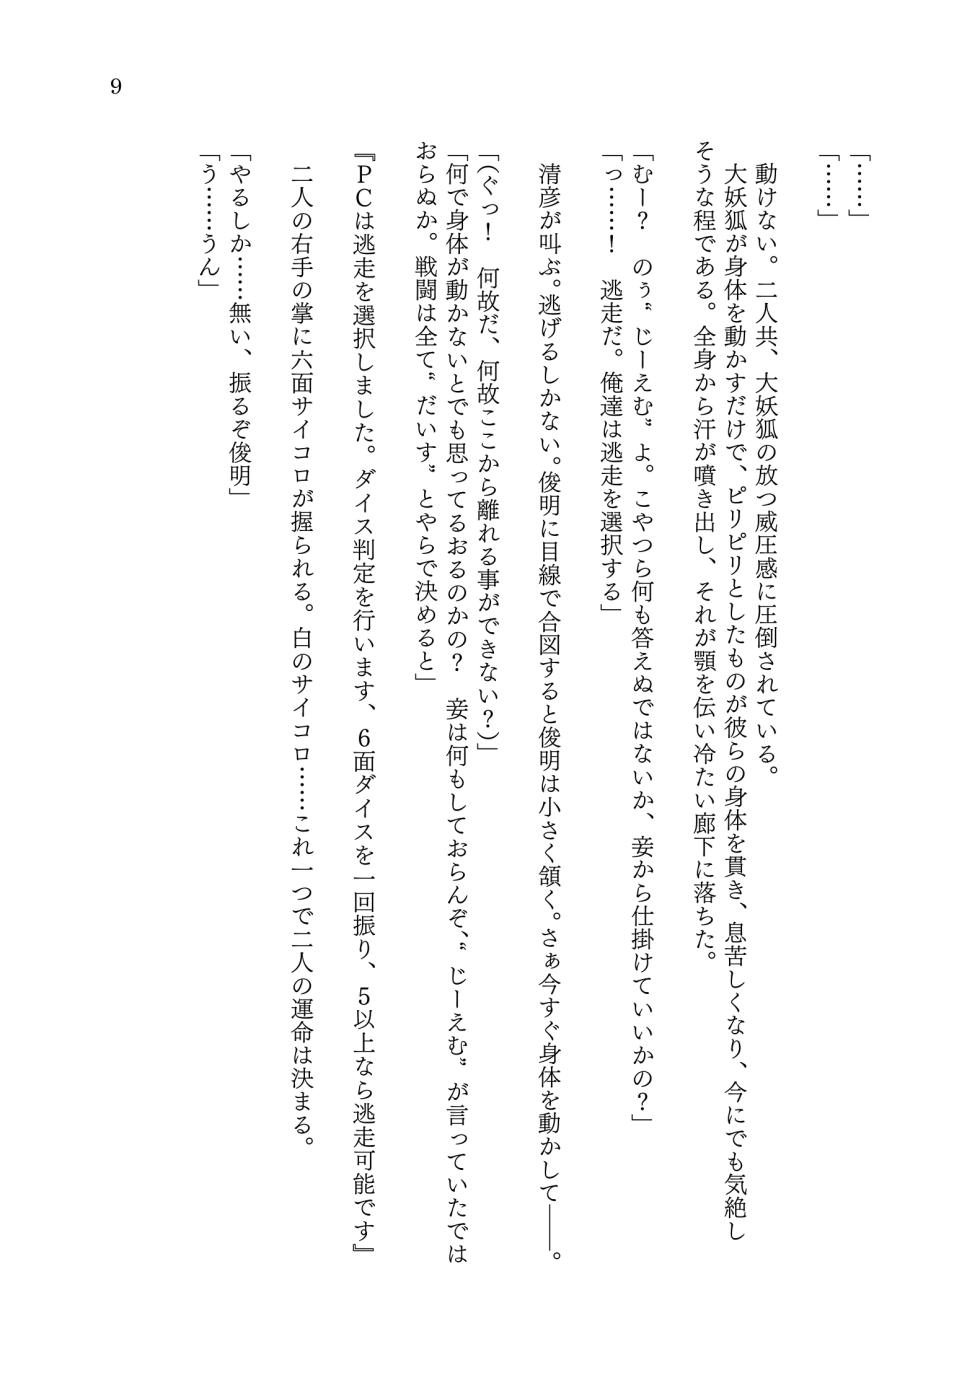 9
「……」
「……」
　動けない。二人共、大妖狐の放つ威圧感に圧倒されている。
　大妖狐が身体を動かすだけで、ピリピリとしたものが彼らの身体を貫き、息苦しくなり、今にでも気絶し
そうな程である。全身から汗が噴き出し、それが顎を伝い冷たい廊下に落ちた。
「むー？　のぅ〝じーえむ〟よ。こやつら何も答えぬではないか、妾から仕掛けていいかの？」
「っ……！　逃走だ。俺達は逃走を選択する」
　清彦が叫ぶ。逃げるしかない。俊明に目線で合図すると俊明は小さく頷く。さぁ今すぐ身体を動かして――。
「（ぐっ！　何故だ、何故ここから離れる事ができない？）」
「何で身体が動かないとでも思ってるおるのかの？　妾は何もしておらんぞ、〝じーえむ〟が言っていたでは
おらぬか。戦闘は全て〝だいす〟とやらで決めると」
『ＰＣは逃走を選択しました。ダイス判定を行います、６面ダイスを一回振り、５以上なら逃走可能です』
　二人の右手の掌に六面サイコロが握られる。白のサイコロ……これ一つで二人の運命は決まる。
「やるしか……無い、振るぞ俊明」
「う……うん」